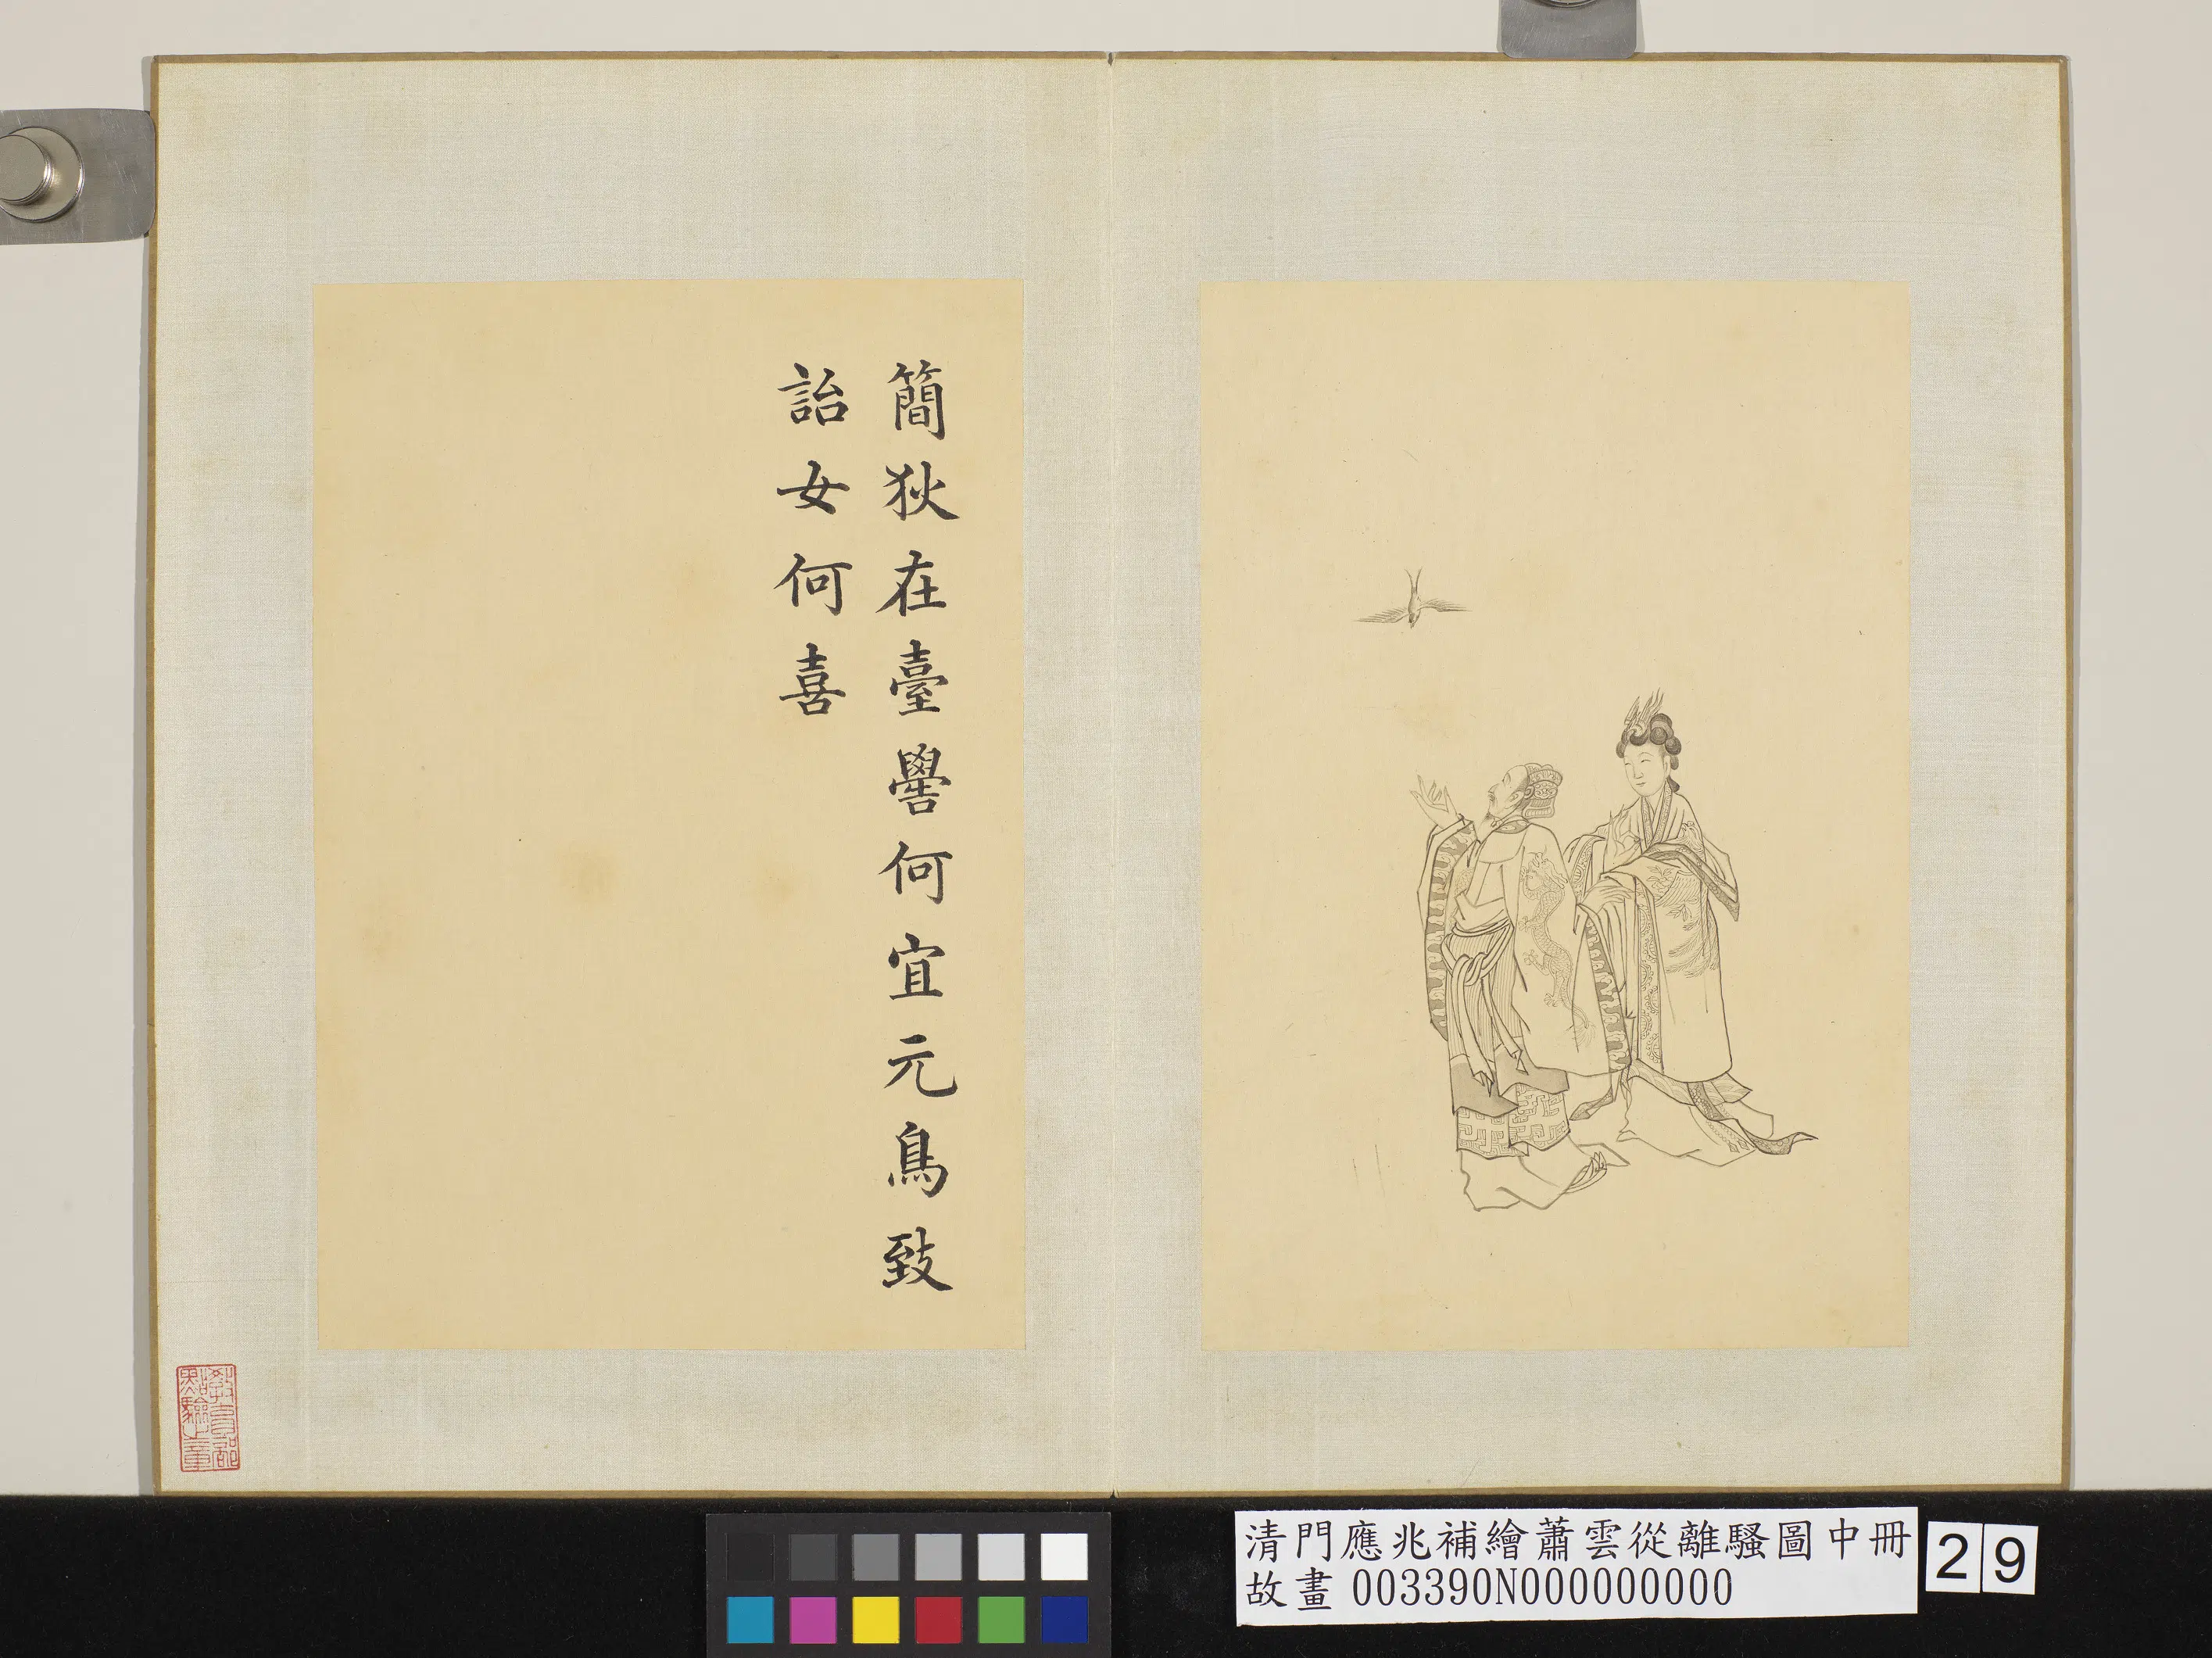 簡狄在臺嚳何宜元鳥致
詒女何喜
教育部
點驗之章
清門應兆補繪蕭雲從離騷圖中冊
故畫 003390N000000000
29